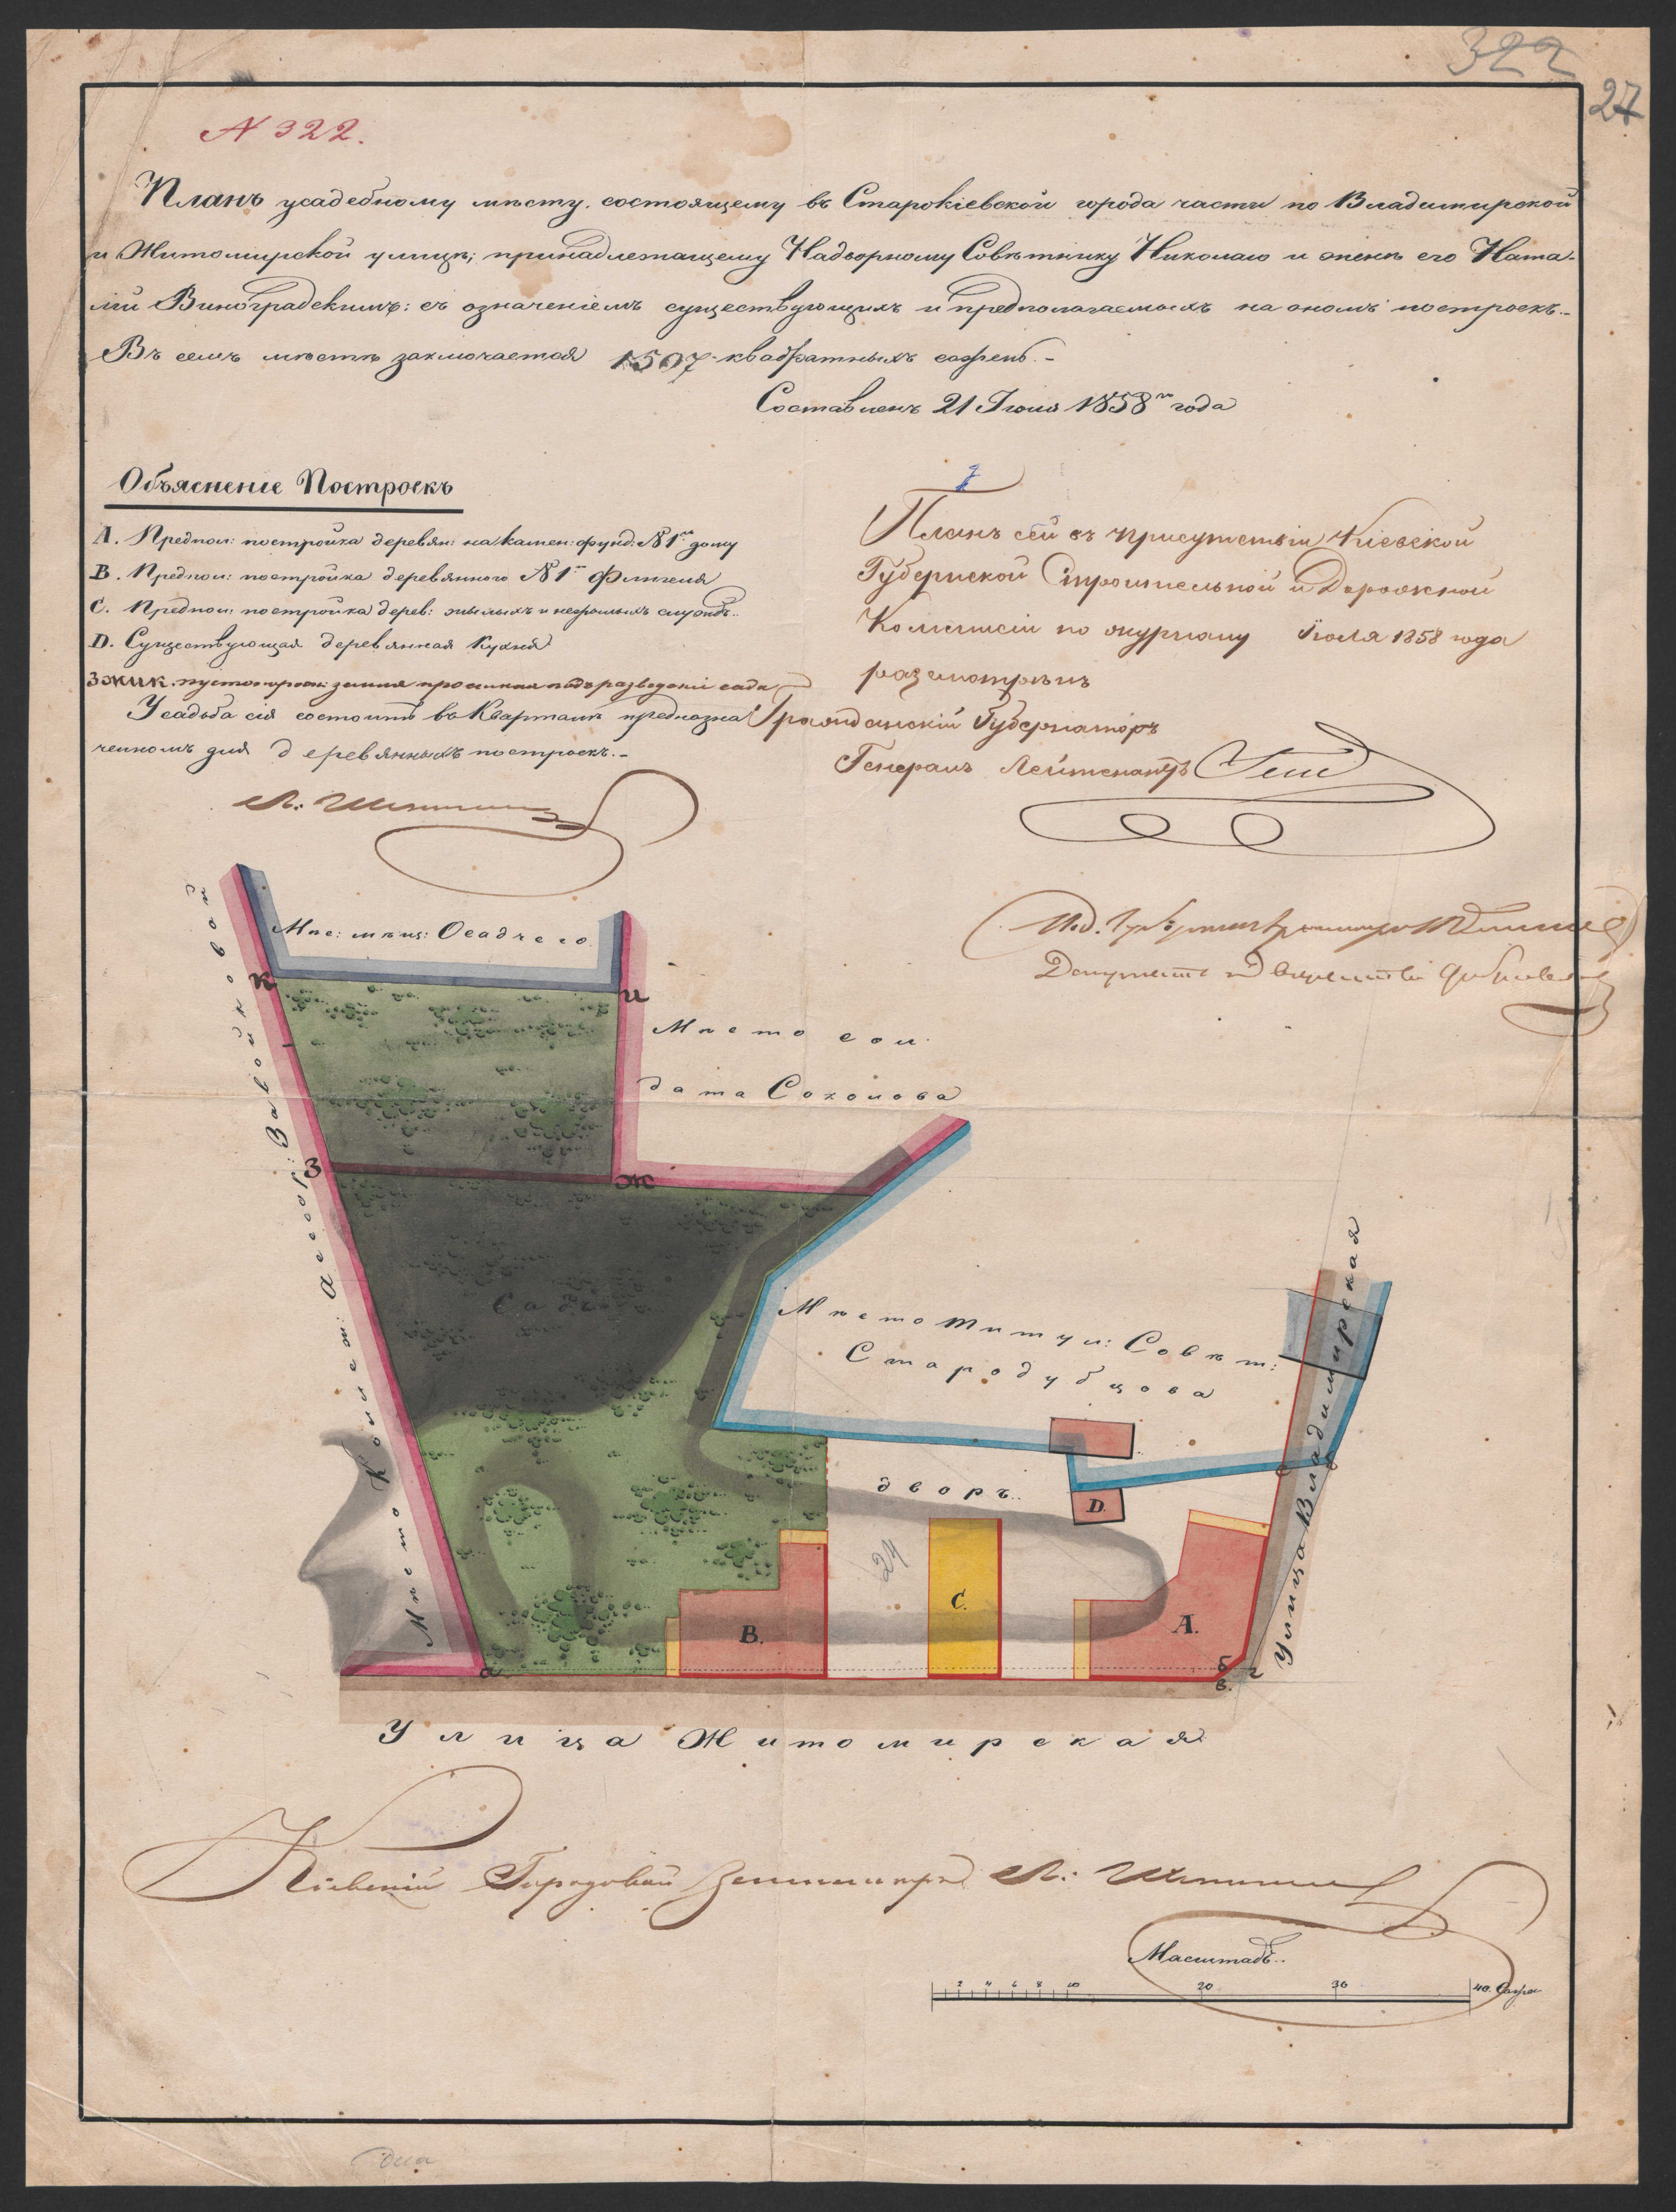 322
27
N 322.
Планъ усадебному мѣсту, состоящему въ Старокіевской города части по Владимирской
и Житомирской улицѣ; принадлежащему Надворному Совѣтнику Николаю и женѣ его Ната-
ліи Виноградскимъ: съ означеніемъ существующихъ и предполагаемыхъ на ономъ построекъ.-
Въ семъ мѣстѣ заключается 1507 квадратныхъ сажень.-
Составленъ 21 Іюля 1858го года
Объясненіе Построекъ
A. Предпол: постройка деревян: на камен: фунд: N 1го дому
B. Предпол: постройка деревянного N 1го флигеля
C. Предпол: постройка дерев: жилыхъ и нежилыхъ службъ..
D. Существующая деревянная Кухня
зжик. пустопорож: земля просимая подъ разведеніе сада
Усадьба сія состоитъ въ Кварталѣ предназна
ченномъ для деревянныхъ построекъ.-
Планъ сей въ присутствіи Кіевской
Губернской Строительной и Дорожной
Коммисіи по журналу Іюля 1858 года
разсмотрѣнъ
Гражданскій Губернаторъ
Генералъ Лейтенантъ
Мѣс: мѣщ: Осадчего
к
и
Мѣсто сол-
дата Соколова
з
ж
Мѣсто Колеж: Асесор: Завойковой
Садъ
Мѣсто Титул: Совѣт:
Стародубцова
дворъ..
24
D.
C.
B.
A.
а
б
в.
г
Улица Владимирская
Улица Житомирская
Кіевскій Городовой Землемѣръ
Масштабъ..
2 4 6 8 10 20 30 40. Сажен